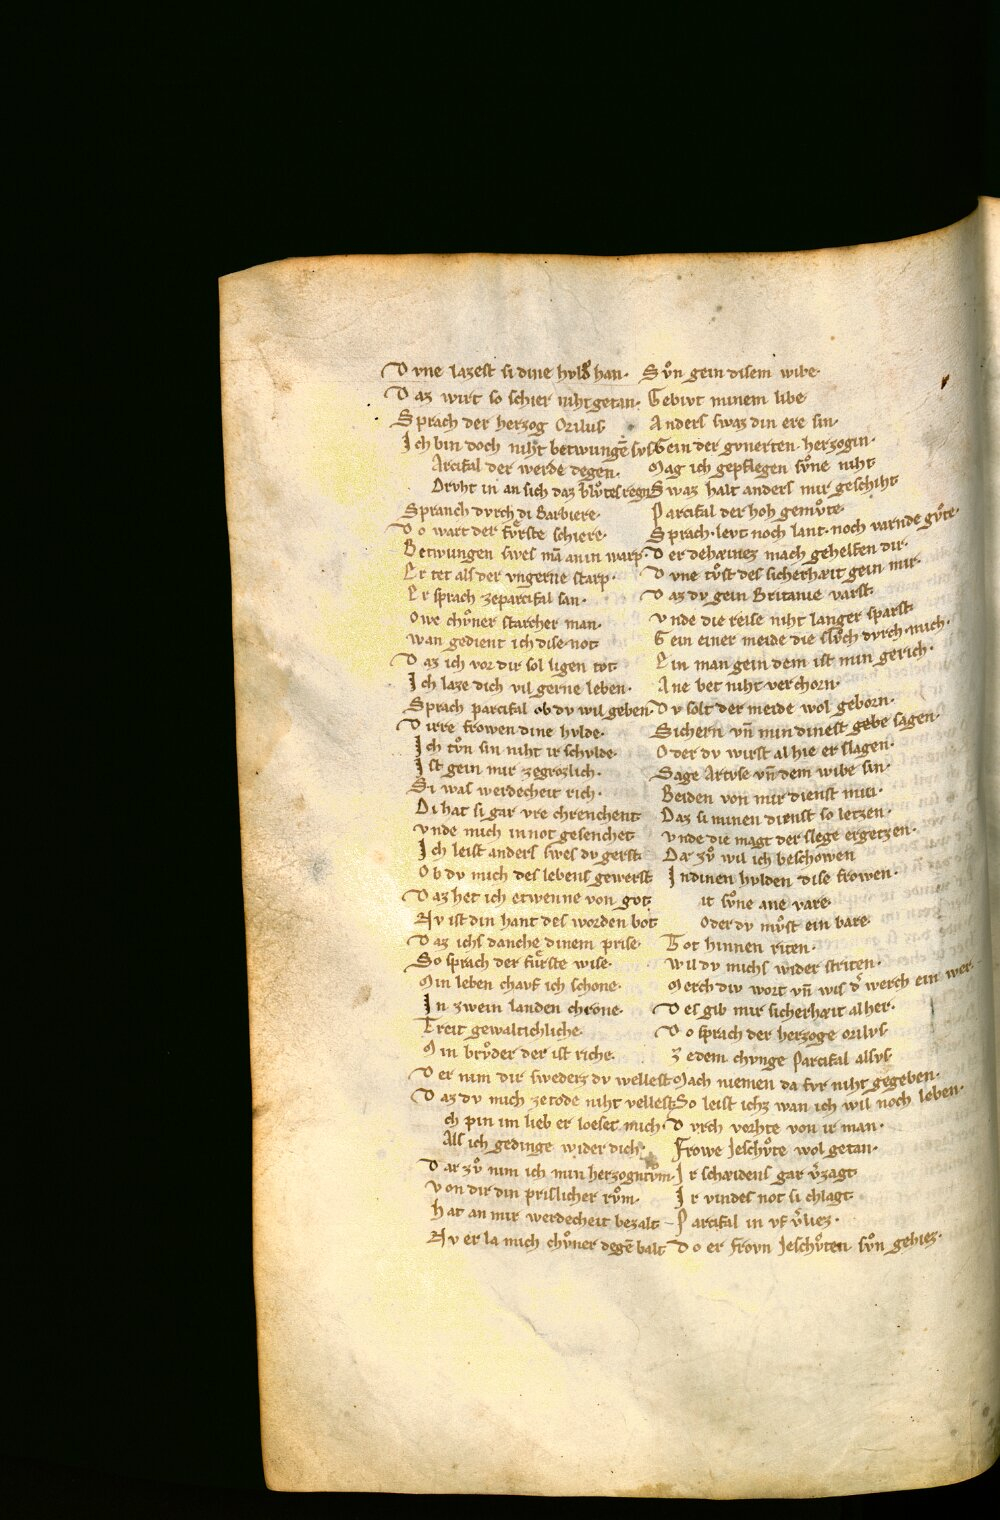 D vne lazest si dine hvld han·
D az wirt so schier niht getan·
Sprach der herzog Orilus
Ich bin doch niht betwungē svs
Arcifal der werde degen·
Drvht in an sich daz blv̊tes regn
Spranch dvrch di Barbiere·
D o wart der fv̊rste schiere·
Betwungen swes mā an in warp·
Er tet als der vngerne starp·
Er sprach zeparcifal san·
Owe chv̊ner starcher man·
wan gedient ich dise not
D az ich vor dir sol ligen tot
Ich laze dich vil gerne leben·
Sprach parcifal ob dv wil geben
D irre frowen dine hvlde·
Ich tv̊n sin niht ir schvlde·
Ist gein mir zegrozlich·
Si was werdecheit rich·
Di hat si gar vre chrenchent
vnde mich in not gesenchet
Ich leist anders swes dv gerst
Ob dv mich des lebens gewerst
D az het ich etwenne von got
Nv ist din hant des worden bot
D az ichs danche dinem prise·
So sprach der fv̊rste wise·
Min leben chavf ich schone·
In zwein landen chrone·
Treit gewaltichliche·
Min brv̊der der ist riche·
D er nim dir sweders dv wellest
D az dv mich ze tode niht vellest
ch pin im lieb er loeset mich·
Als ich gedinge wider dich·
D ar zv̊ nim ich min herzogntv̊m·
von dir din prislicher rv̊m·
hat an mir werdecheit bezalt
Nv er la mich chv̊ner degē balt
Sv̊n gein disem wibe·
Gebivt minem libe
Anders swaz din ere sin·
Gein der gvnerten herzogin·
Mag ich gepflegen sv̊ne niht
Swaz halt anders mir geschiht
Parcifal der hoh gemv̊te·
Sprach·levt noch lant·noch varnde gv̊te·
D er dehæinez mach gehelfen dir·
D vne tv̊st des sicherhæit gein mir·
D az dv gein Britanie varst·
vnde die reise niht langer sparst·
Gein einer meide die slv̊ch dvrch mich·
Ein man gein dem ist min gerich·
Ane bet niht verchorn·
D v solt der meide wol geborn·
Sichern vn̄ min dinest gebe sagen·
Oder dv wirst al hie er slagen·
Sage Artvse vn̄ dem wibe sin·
Beiden von mir dienst min·
Daz si minen dienst so letzen·
vnde die magt der slege ergetzen·
Dar zv̊ wil ich beschowen
In dinen hvlden dise frowen·
it sv̊ne ane vare·
Oder dv mv̊st ein bare·
Tot hinnen riten·
wil dv michs wider striten·
Merch div wort vn̄ wis d̕ werch ein wer·
D es gib mir sicherhæit al her·
D o sprach der herzoge orilvs
Zedem chvnge Parcifal alsvs
Mach niemen da fvr niht gegeben·
So leist ichz wan ich wil noch leben·
D vrch vorhte von ir man·
Frowe Jeschv̊te wol getan·
Ir schæidens gar v̕zagt
Ir vindes not si chlagt
Parcifal in vf v̕liez·
D o er frovn Jeschv̊ten sv̊n gehiez·